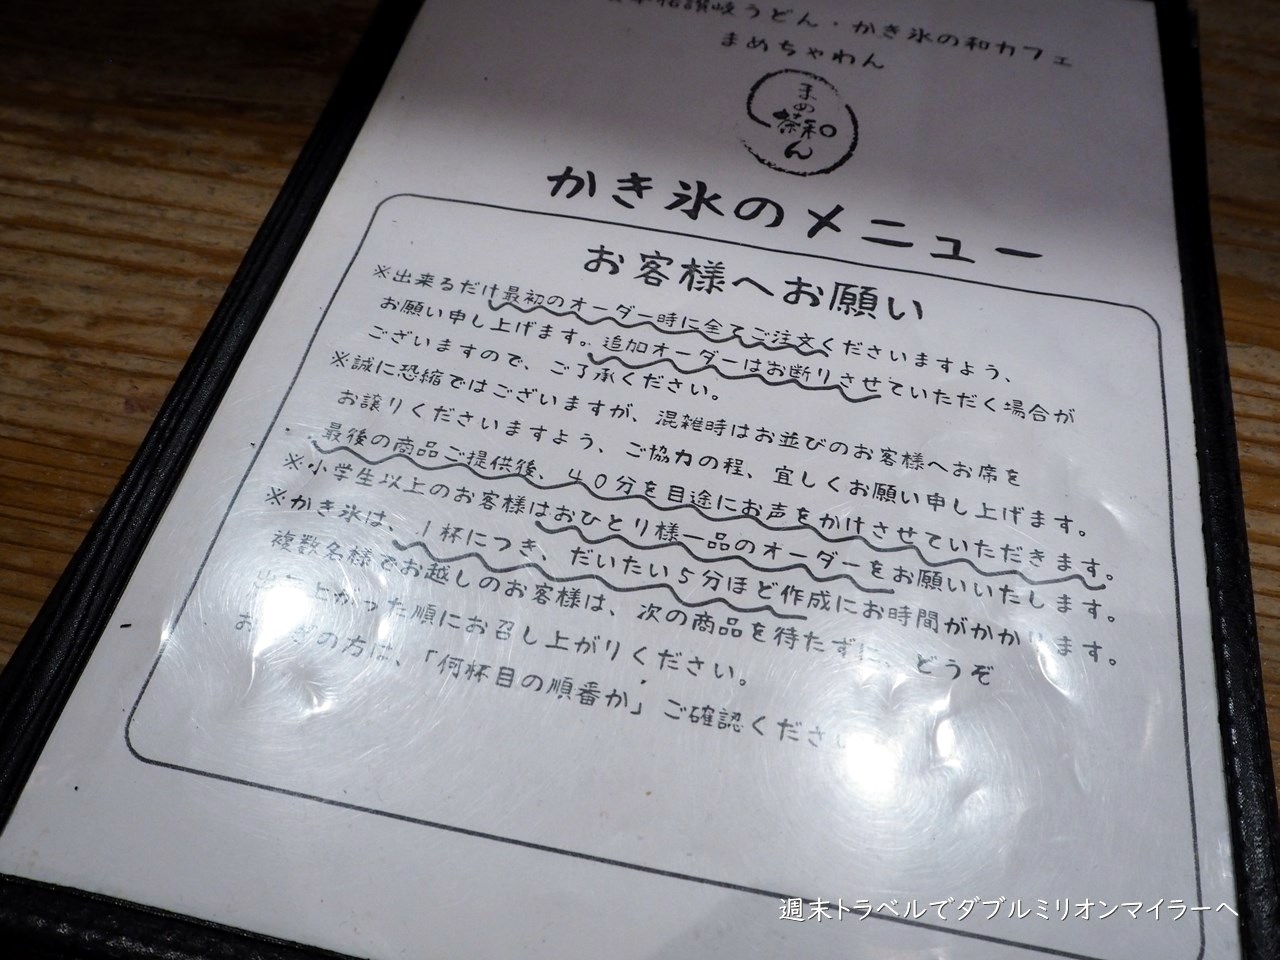 讃岐うどん・かき氷の和カフェ
まめちゃわん
まめ
茶和
ん
かき氷のメニュー
お客様へお願い
※出来るだけ最初のオーダー時に全てご注文くださいますよう、
お願い申し上げます。追加オーダーはお断りさせていただく場合が
ございますので、ご了承ください。
※誠に恐縮ではございますが、混雑時はお並びのお客様へお席を
お譲りくださいますよう、ご協力の程、宜しくお願い申し上げます。
・・最後の商品ご提供後、40分を目途にお声をかけさせていただきます。
※小学生以上のお客様はおひとり様一品のオーダーをお願いいたします。
※かき氷は、1杯につき、だいたい5分ほど作成にお時間がかかります。
複数名様でお越しのお客様は、次の商品を待たずに、どうぞ
上がった順にお召し上がりください。
の方は、「何杯目の順番か」ご確認くださ
週末トラベルでダブルミリオンマイラーへ